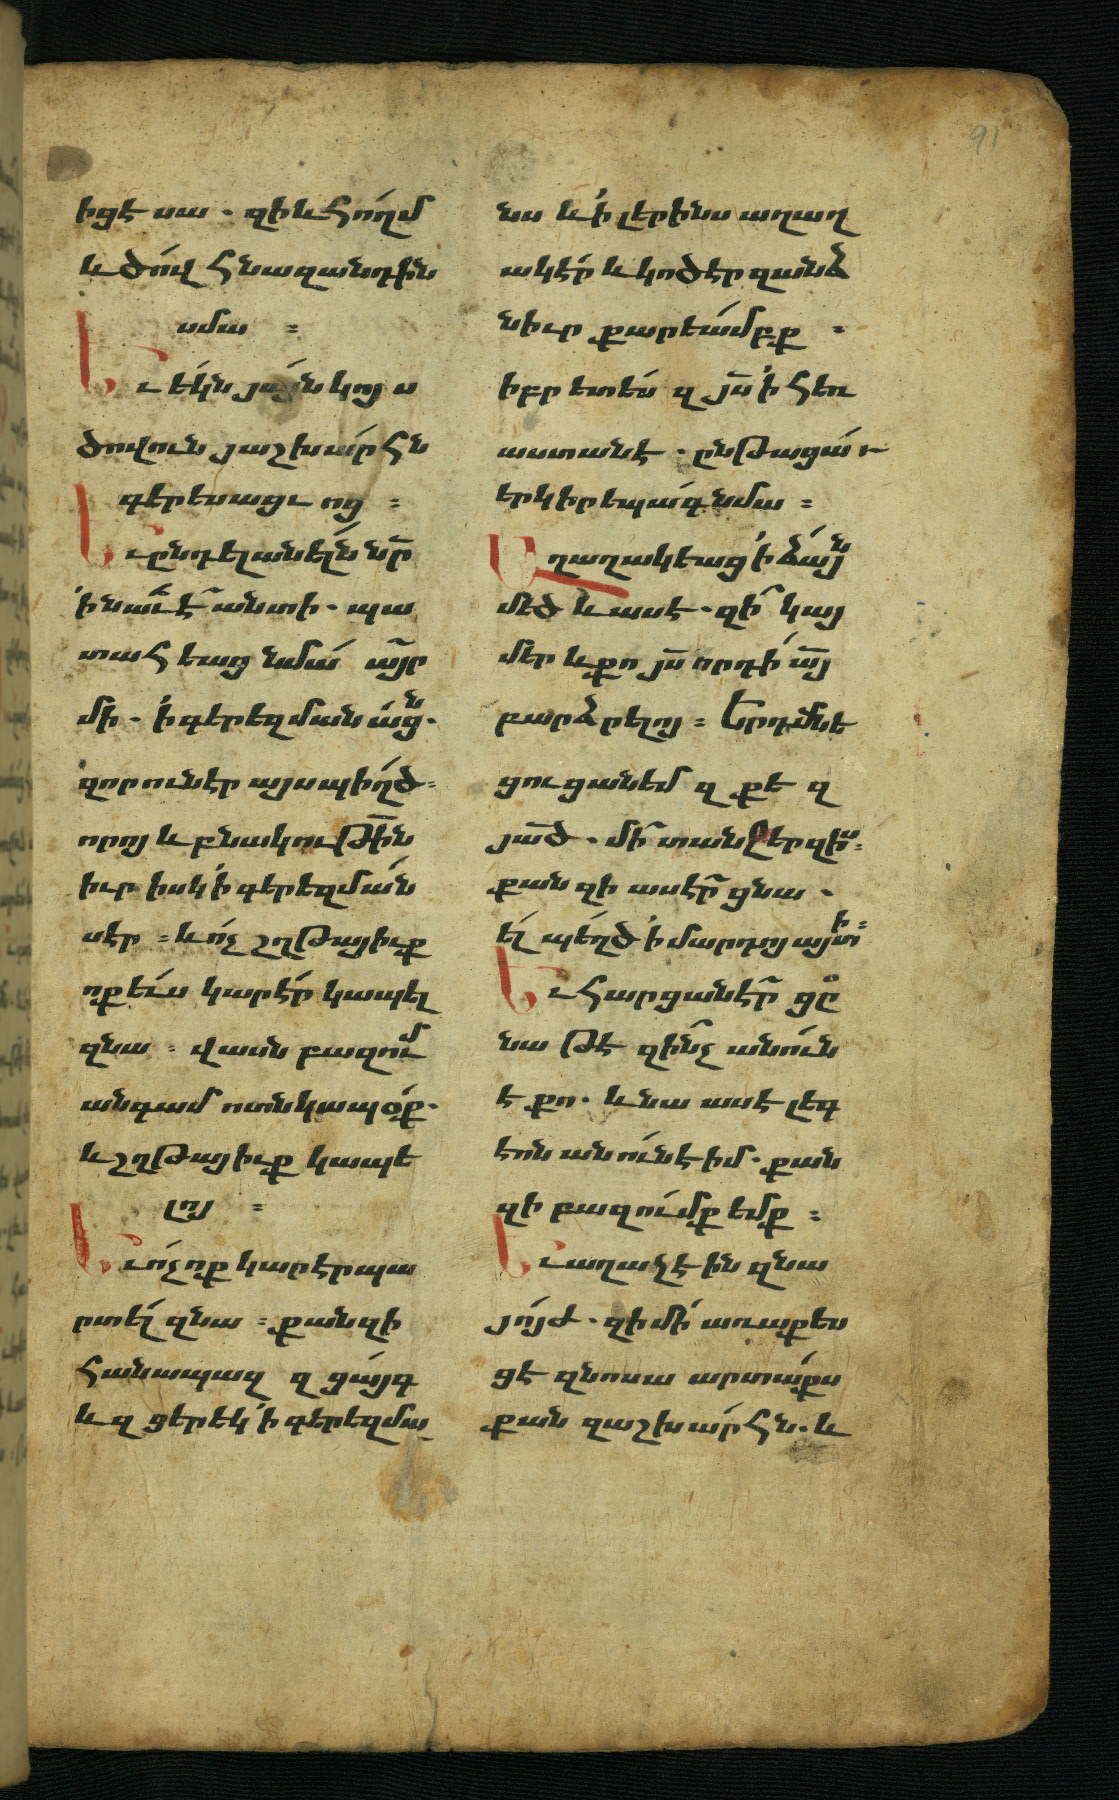 91
իցէ սա . զի և հողմ
և ծով հնազանդին
սմա ։
Եւ եկն յայնկոյս
ծովուն յաշխարհն
գերեսացւոց ։
Եւ ընդ ելանելն նր
ի նաւէ անտի . պա
տահեաց նմա այր
մի . ի գերեզմանաց .
զոր ունէր այս պիղծ ։
որոյ և բնակութին
իւր իսկ ի գերեզման
սէր ։ և ոչ շղթայիւք
ոք ևս կարէր կապել
զնա ։ վասն բազում
անգամ ոտնկապօք .
և շղթայիւք կապե
լոյ ։
Եւ ոչ ոք կարէր պա
րտել զնա ։ քանզի
հանապազ զցայգ
և զցերեկ ի գերեզմա
նս և ի լերինս աղաղ
ակէր և կոծէր զանձ
նիւր քարեամբք .
իբր ետես զյս ի հեռ
աստանէ . ընթացաւ
երկիր եպագ նմա ։
Աղաղակեաց ի ձայն
մեծ և ասէ . զի կայ
մեր և քո յս որդի այ
բարձրելոյ ։ Երդմնե
ցուցանեմ զքե զ
յած . մի տանջեր զիս ։
քանզի ասէր ցնա .
ել պեղծ ի մարդոյ այտի ։
Եւ հարցանէր ցը
նա թէ զինչ անուն
է քո . և նա ասէ լեգ
էոն անուն է իմ . քան
զի բազումք եմք ։
Եւ աղաչէին զնա
յոյժ . զի մի առաքես
ցէ զնոսա արտաքս
քան զաշխարհն . և